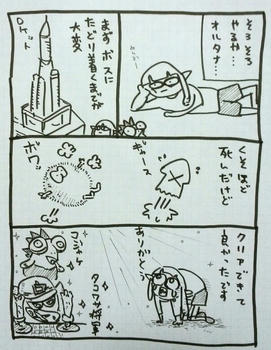 そろそろ
やるや…
オルタナ…
まず ボスに
たどり着くまでが
大変
ロケット
くそほど
死んだけど
ギャース
ボワッ
クリアできて
良かったです
ありがとう
コジャケ
タコワサ将軍